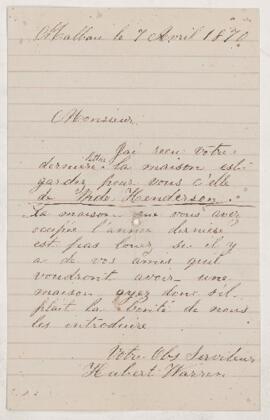 Malbaie le 7 Avril 1870
Monsieur
J'ai recu votre
derniere lettre la maison est
gardez pour vous celle
de Mde Henderson.
la maison que vous avez
occupée l'année derniere
est pas louez si il y
a de vos amis quil
voudront avoir une
maison ayez donc s'il
plait la bonté de nous
les introduire
Votre Obs Serviteur
Hubert Warren